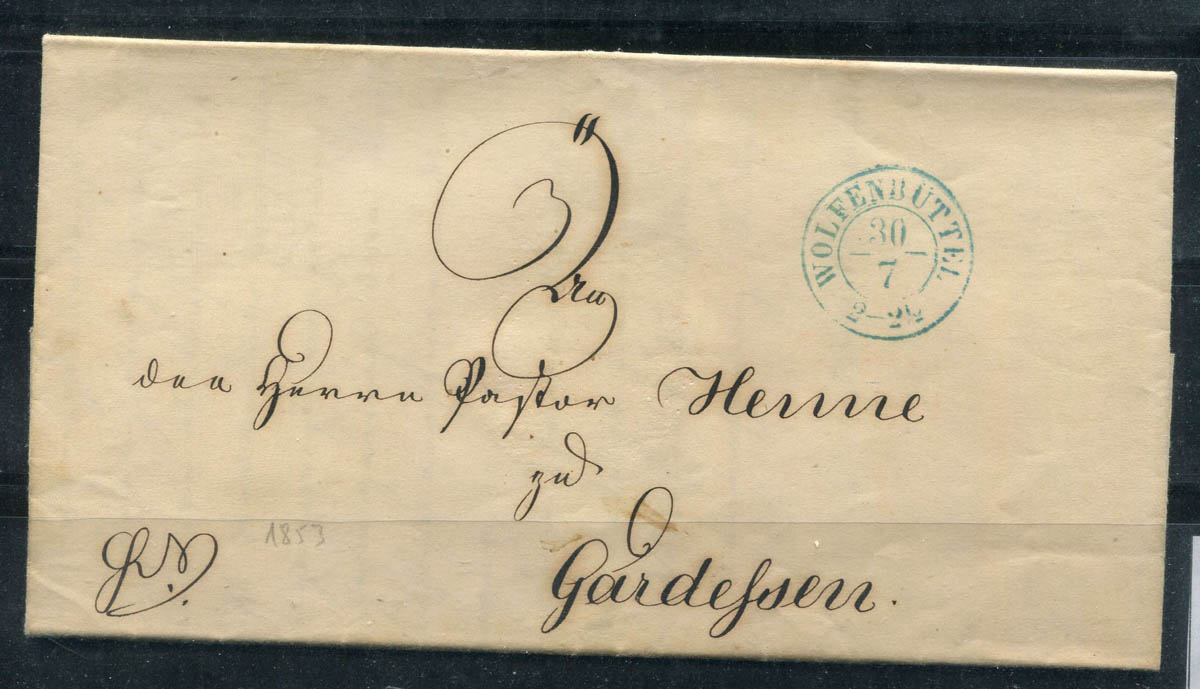 An
WOLFENBÜTTEL
30
7
2-2½
den Herrn Pastor Henne
zu
Gardeſsen.
1853